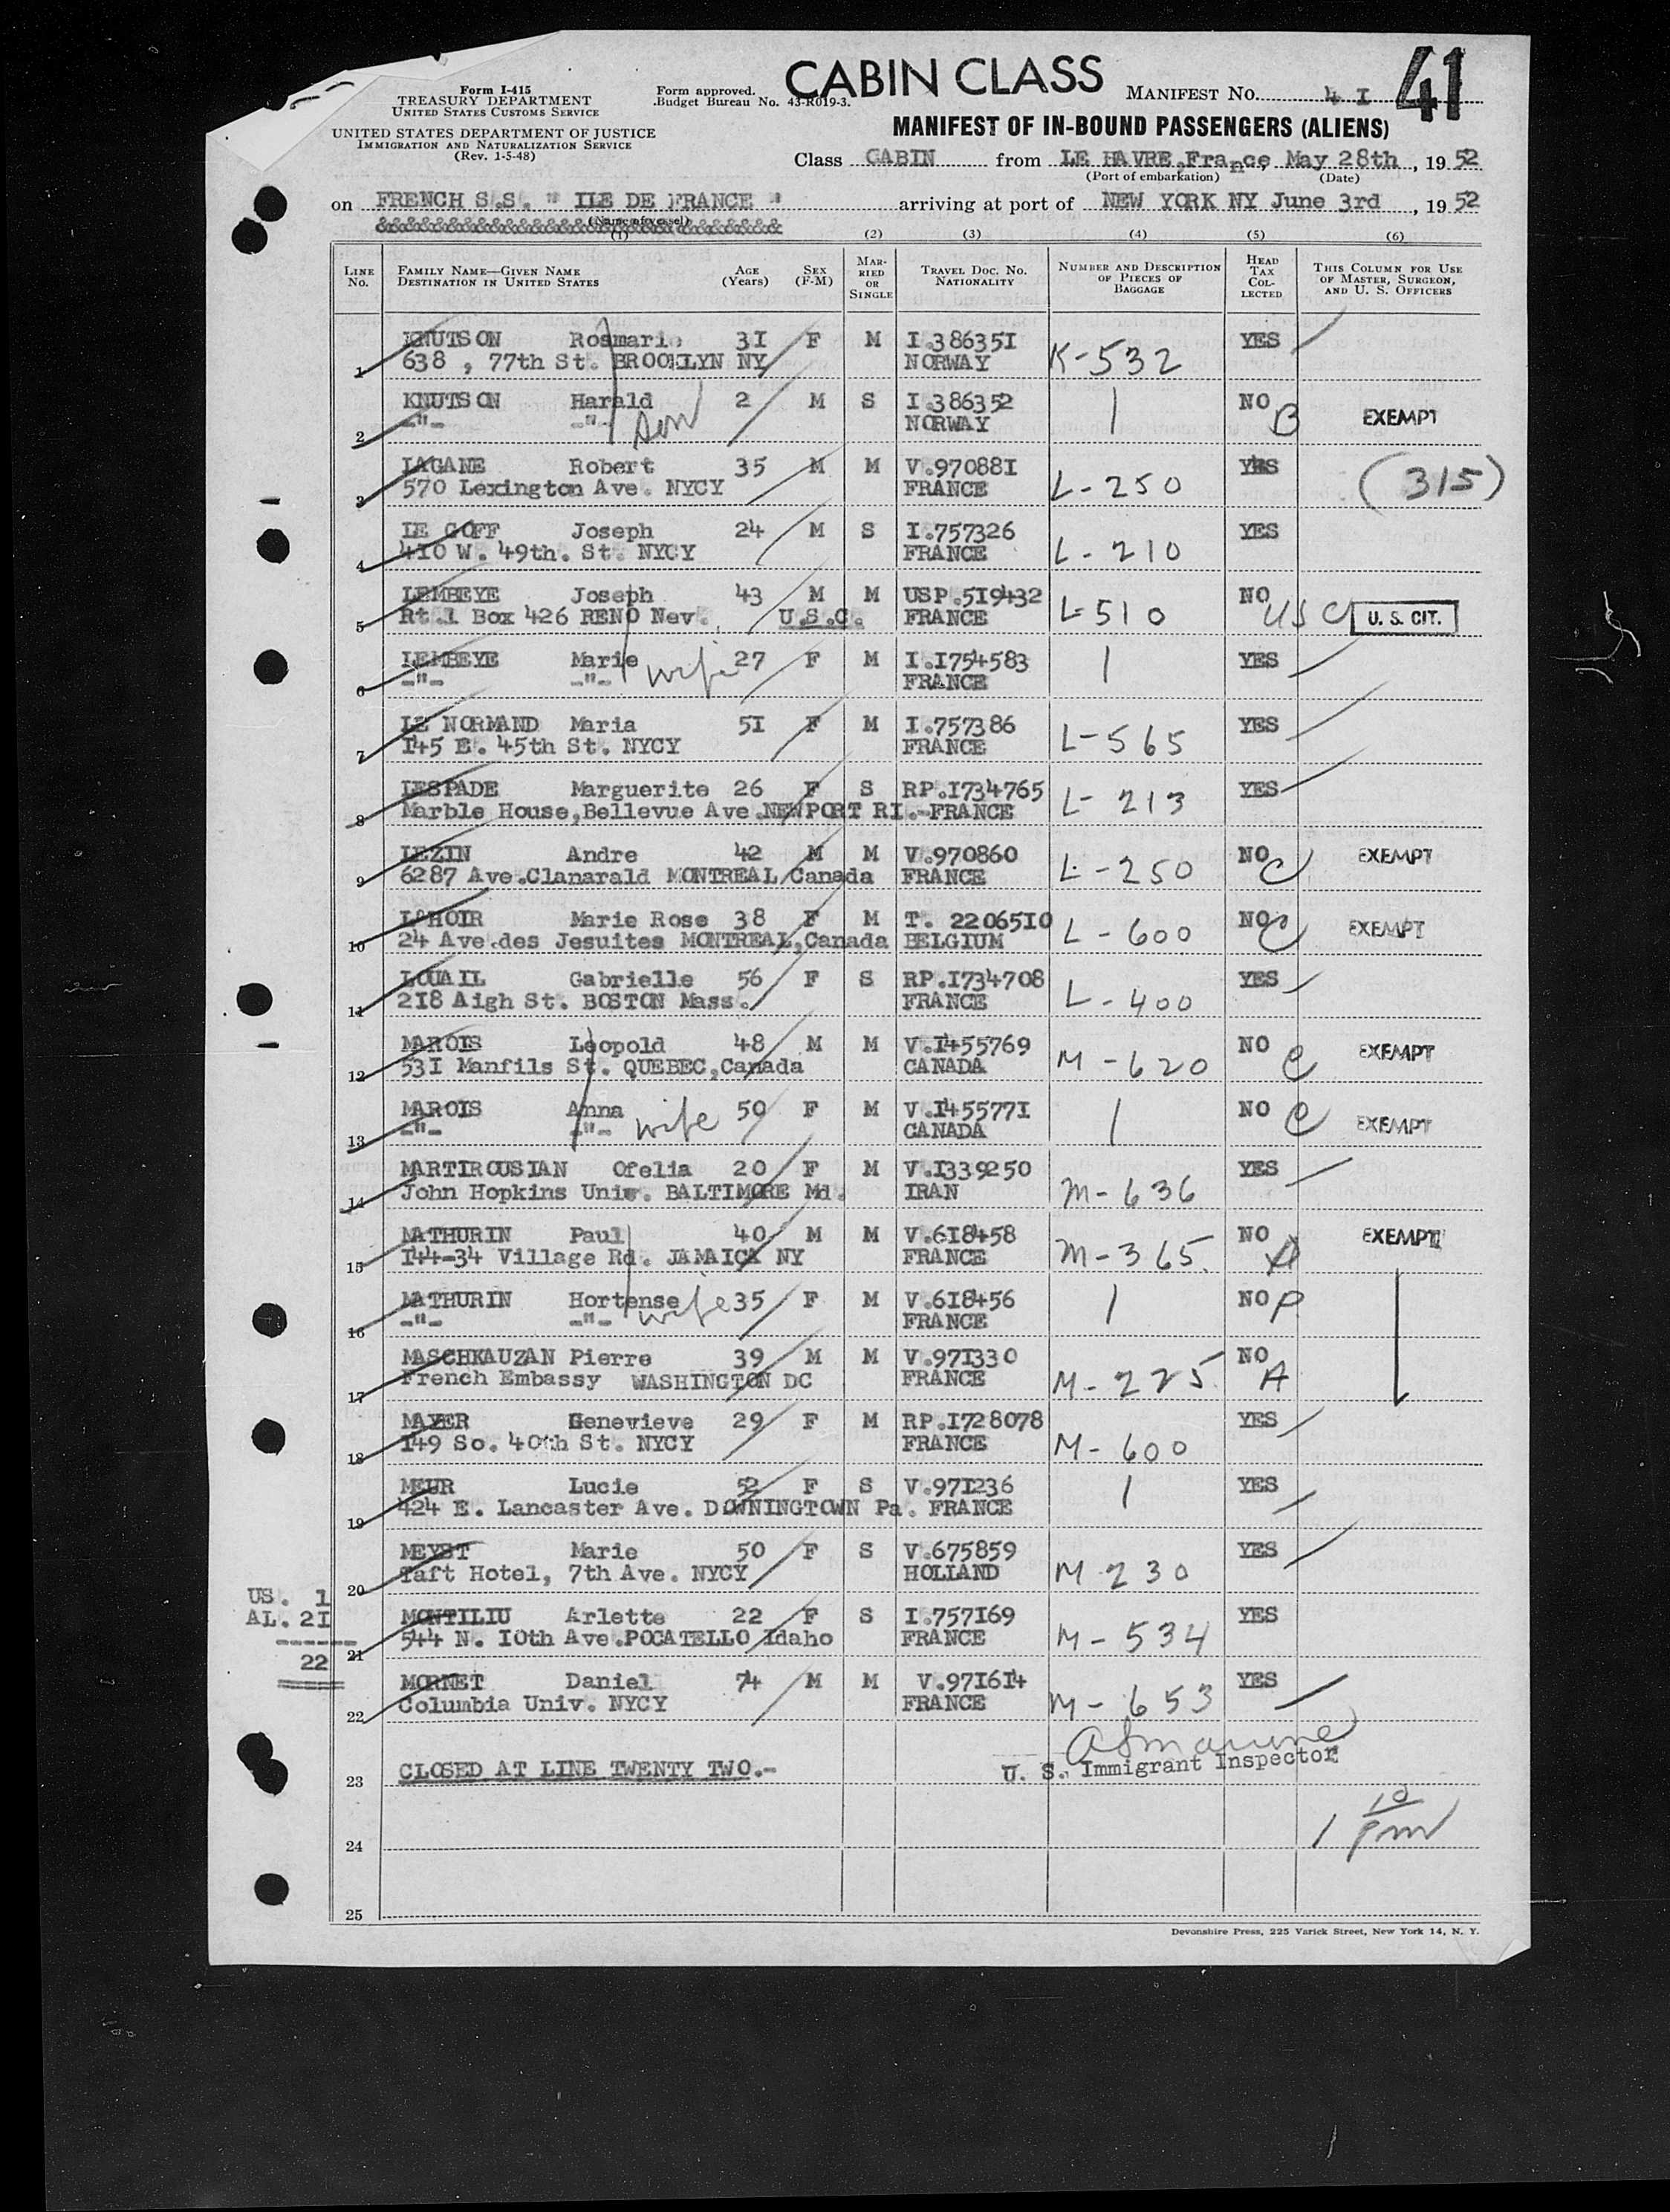 CABIN CLASS
41
Form I-415
TREASURY DEPARTMENT
UNITED STATES CUSTOMS SERVICE
Form approved.
Budget Bureau No. 43-R019-3.
MANIFEST NO. 4I
UNITED STATES DEPARTMENT OF JUSTICE
IMMIGRATION AND NATURALIZATION SERVICE
(Rev. 1-5-48)
MANIFEST OF IN-BOUND PASSENGERS (ALIENS)
Class CABIN from LE HAVRE,France, May 28th, 1952
(Port of embarkation) (Date)
on FRENCH S.S. " ILE DE FRANCE " arriving at port of NEW YORK NY June 3rd, 1952
(Name of vessel)
(1) (2) (3) (4) (5) (6)
LINE No. FAMILY NAME—GIVEN NAME DESTINATION IN UNITED STATES AGE (Years) SEX (F-M) MARRIED OR SINGLE TRAVEL DOC. NO. NATIONALITY NUMBER AND DESCRIPTION OF PIECES OF BAGGAGE HEAD TAX COLLECTED THIS COLUMN FOR USE OF MASTER, SURGEON, AND U. S. OFFICERS
KNUTSON Rosmarie 3I F M I.38635I YES
1 638 , 77th St. BROOKLYN NY NORWAY K-532
KNUTSON Harald 2 M S I.386352 NO B EXEMPT
2 -"- -"- son NORWAY |
LAGANE Robert 35 M M V.97088I YES (315)
3 570 Lexington Ave. NYCY FRANCE L-250
LE GOFF Joseph 24 M S I.757326 YES
4 4IO W. 49th. St. NYCY FRANCE L-210
LEMBEYE Joseph 43 M M USP.5I9432 NO
5 Rt.1 Box 426 RENO Nev. U.S.C. FRANCE L-510 USC U. S. CIT.
LEMBEYE Marie wife 27 F M I.I754583 | YES
6 -"- -"- FRANCE
LE NORMAND Maria 5I F M I.757386 YES
7 I45 E. 45th St. NYCY FRANCE L-565
LESPADE Marguerite 26 F S RP.I734765 YES
8 Marble House,Bellevue Ave.NEWPORT RI.-FRANCE L-213
LEZIN Andre 42 M M V.970860 NO C EXEMPT
9 6287 Ave.Clanarald MONTREAL Canada FRANCE L-250
LOHOIR Marie Rose 38 F M T. 22065I0 NO C EXEMPT
10 24 Ave.des Jesuites MONTREAL,Canada BELGIUM L-600
LOUAIL Gabrielle 56 F S RP.I734708 YES
11 2I8 Aigh St. BOSTON Mass. FRANCE L-400
MAROIS Leopold 48 M M V.I455769 NO C EXEMPT
12 53I Manfils St. QUEBEC,Canada CANADA M-620
MAROIS Anna 50 F M V.I45577I NO C EXEMPT
13 -"- -"- wife CANADA |
MARTIROUSIAN Ofelia 20 F M V.I339250 YES
14 John Hopkins Univ. BALTIMORE Md. IRAN M-636
MATHURIN Paul 40 M M V.6I8458 NO EXEMPT
15 I44-34 Village Rd. JAMAICA NY FRANCE M-365.
MATHURIN Hortense wife 35 F M V.6I8456 | NO P
16 -"- -"- FRANCE
MASCHKAUZAN Pierre 39 M M V.97I330 NO A
17 French Embassy WASHINGTON DC FRANCE M-225
MAYER Genevieve 29 F M RP.I728078 YES
18 I49 So. 40th St. NYCY FRANCE M-600
MEUR Lucie 52 F S V.97I236 | YES
19 424 E. Lancaster Ave. DOWNINGTOWN Pa. FRANCE
MEYST Marie 50 F S V.675859 YES
20 Taft Hotel, 7th Ave. NYCY HOLLAND M-230
US. 1
AL. 2I
22
MONTILIU Arlette 22 F S I.757I69 YES
21 544 N. IOth Ave.POCATELLO Idaho FRANCE M-534
MORNET Daniel 74 M M V.97I6I4 YES
22 Columbia Univ. NYCY FRANCE M-653
23 CLOSED AT LINE TWENTY TWO.-
U. S. Immigrant Inspector
1 10 pm
24
25
Devonshire Press, 225 Varick Street, New York 14, N. Y.